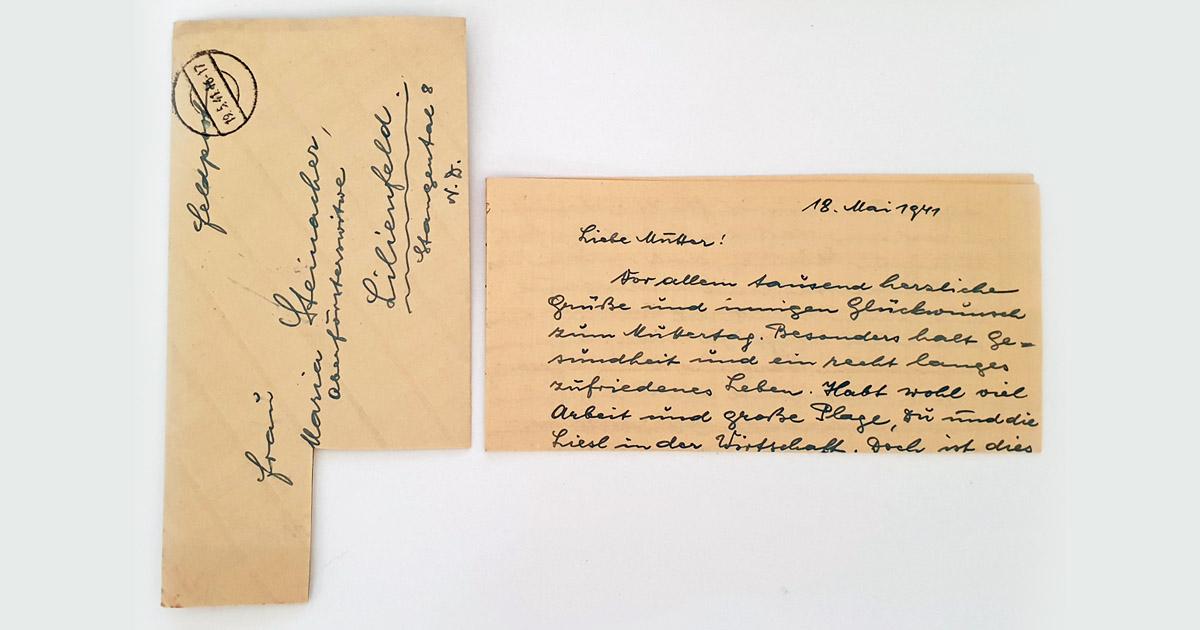 Feldpost
19.5.41.-17
Frau
Maria Steinacher,
Oberförsterswitwe
Lilienfeld.
Stangental 8
N. D.
18. Mai 1941
Liebe Mutter!
Vor allem tausend herzliche
Grüße und innigen Glückwunsch
zum Muttertag. Besonders halt Ge=
sundheit und ein recht langes
zufriedenes Leben. Habt wohl viel
Arbeit und große Plage, Du und die
Liesl in der Wirtschaft. Doch ist dies